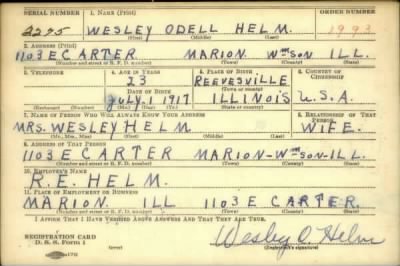 SERIAL NUMBER 1. NAME (Print) ORDER NUMBER
2295 WESLEY ODELL HELM. 1993
(First) (Middle) (Last)
2. ADDRESS (Print)
1103 E CARTER MARION WMSON ILL.
(Number and street or R. F. D. number) (Town) (County) (State)
3. TELEPHONE 4. AGE IN YEARS 5. PLACE OF BIRTH 6. COUNTRY OF CITIZENSHIP
23 REEVESVILLE
DATE OF BIRTH (Town or county)
JULY, 1917 ILLINOIS U.S.A.
(Exchange) (Number) (Mo.) (Day) (Yr.) (State or country)
7. NAME OF PERSON WHO WILL ALWAYS KNOW YOUR ADDRESS 8. RELATIONSHIP OF THAT PERSON
MRS. WESLEY HELM. WIFE.
(Mr., Mrs., Miss) (First) (Middle) (Last)
9. ADDRESS OF THAT PERSON
1103 E CARTER MARION-WMSON-ILL.
(Number and street or R. F. D. number) (Town) (County) (State)
10. EMPLOYER'S NAME
R.E. HELM.
11. PLACE OF EMPLOYMENT OR BUSINESS
MARION. ILL 1103 E CARTER.
(Number and street or R. F. D. number) (Town) (County) (State)
I AFFIRM THAT I HAVE VERIFIED ABOVE ANSWERS AND THAT THEY ARE TRUE.
REGISTRATION CARD
D. S. S. Form 1 Wesley O. Helm
(Registrant's signature)